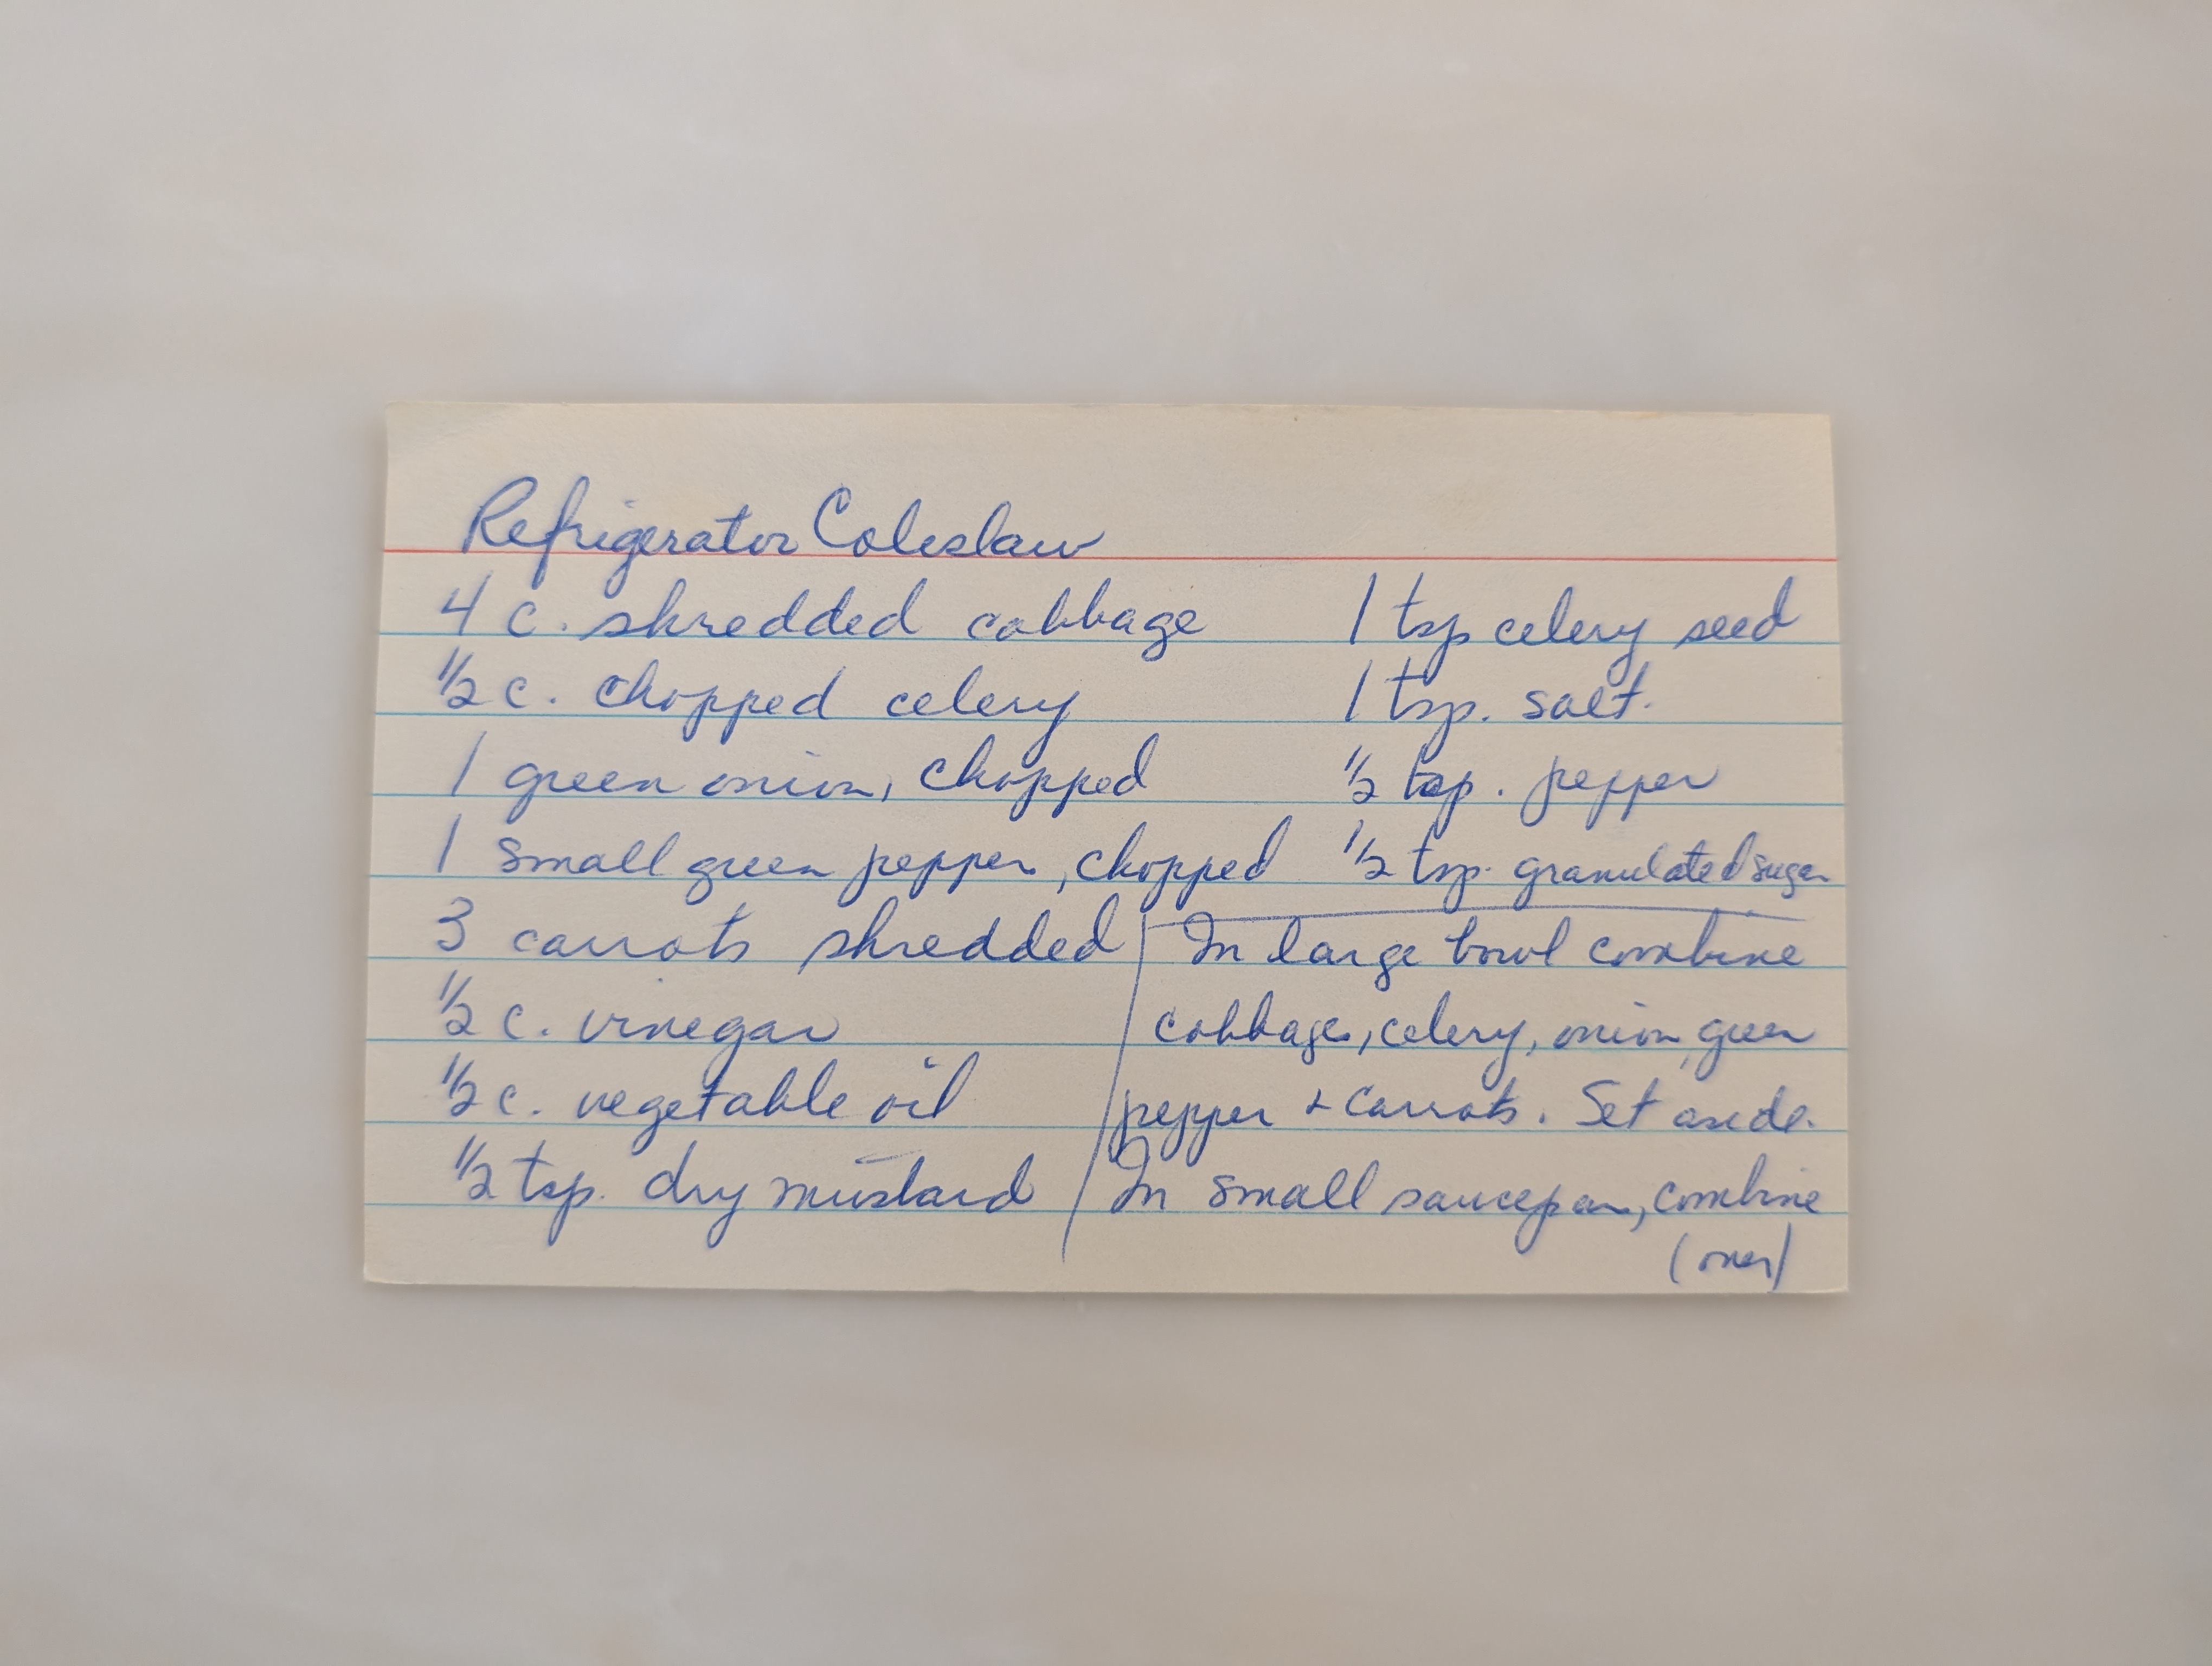 Refrigerator Coleslaw
4 c. shredded cabbage
½ c. chopped celery
1 green onion, chopped
1 small green pepper, chopped
3 carrots shredded
½ c. vinegar
½ c. vegetable oil
½ tsp. dry mustard
1 tsp celery seed
1 tsp. salt.
½ tsp. pepper
½ tsp. granulated sugar
In large bowl combine
cabbage, celery, onion, green
pepper + carrots. Set aside.
In small saucepan, combine
(over)